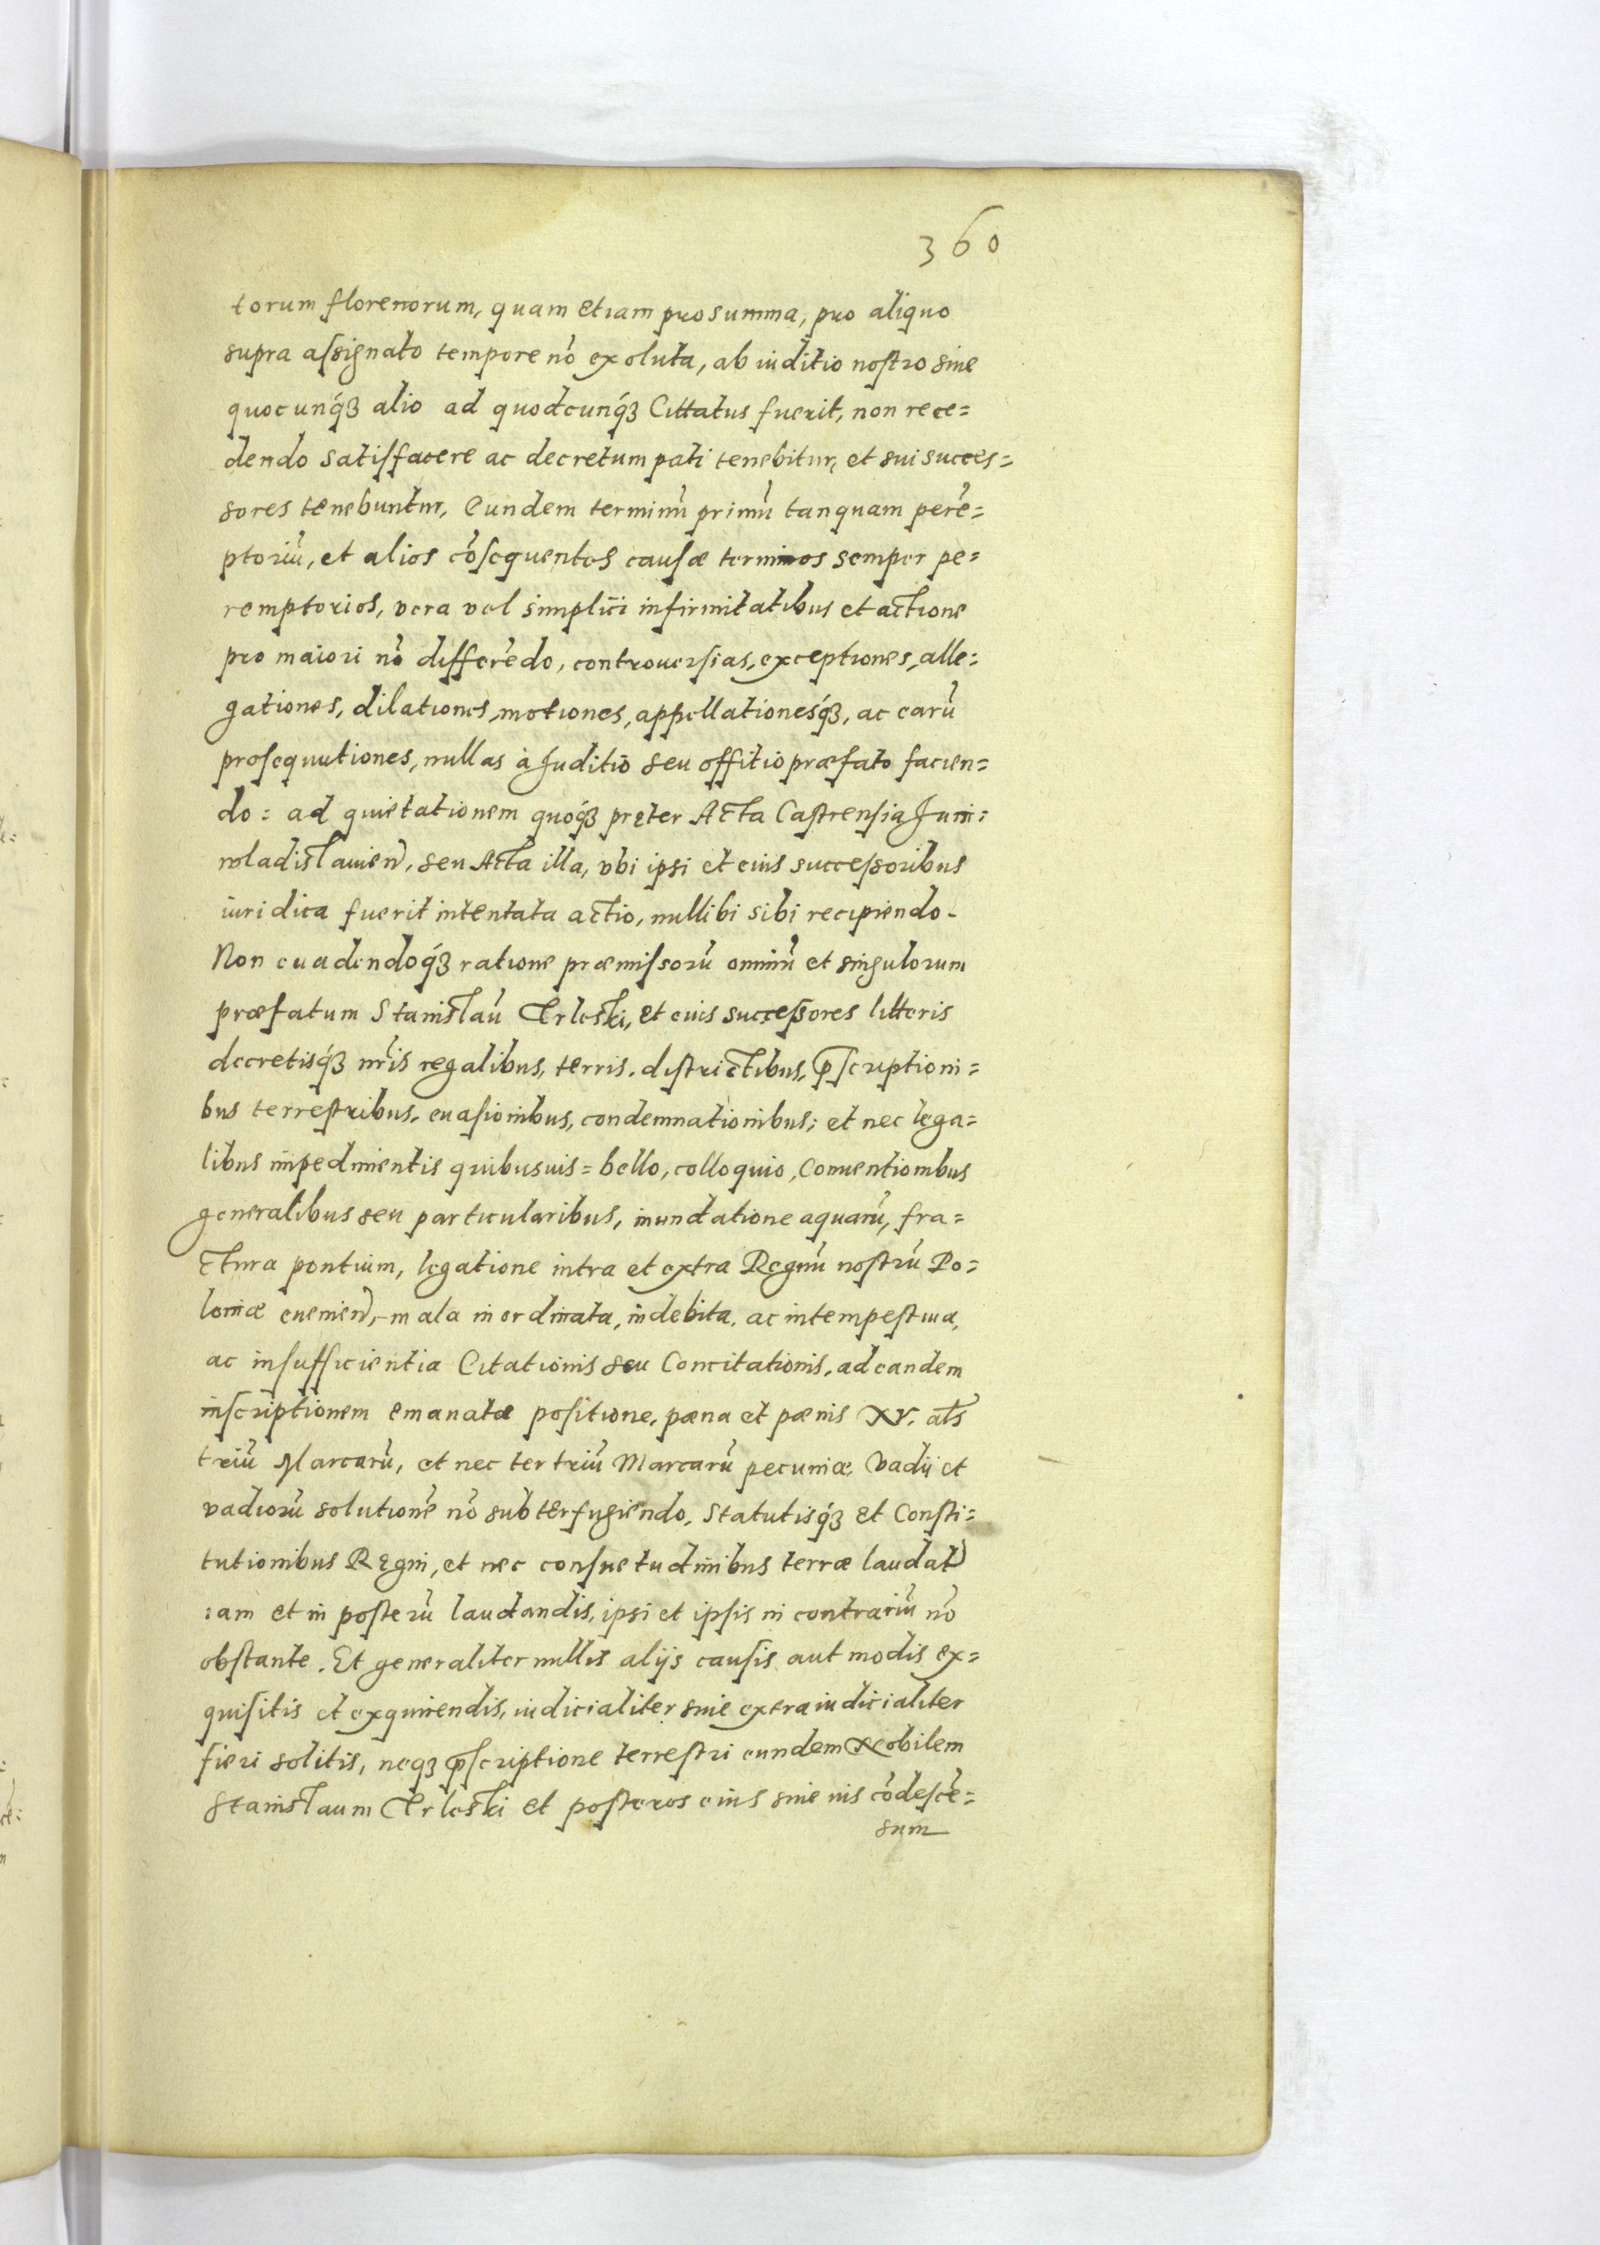 360
torum florenorum, quam etiam pro summa, pro aliquo
supra assignato tempore nō exoluta, ab iuditio nostro siue
quocunq́ꝫ alio ad quodcunq́ꝫ Cittatus fuerit, non rece=
dendo satisfacere ac decretum pati tenebitur, et sui succes=
sores tenebuntur, Eundem terminū primū tanquam perē=
ptoriū, et alios cōsequentes causæ terminos semper pe=
remptorios, vera vel simplici infirmitatibus et actione
pro maiori nō differēdo, controuersias, exceptiones, alle=
gationes, dilationes, motiones, appellationesq́ꝫ, ac earū
prosequutiones, nullas à Juditio seu offitio præfato facien=
do: ad quietationem quoq́ꝫ pręter Acta Castrensia Juni=
wladislauien̄, seu Acta illa, vbi ipsi et eius successoribus
iuridica fuerit intentata actio, nullibi sibi recipiendo.
Non euadendoq́ꝫ ratione præmissorū omniū et singulorum
præfatum Stanislaū Erleski, et eius successores litteris
decretisq́ꝫ nr̄is regalibus, terris, districtibus, p̄scriptioni=
bus terrestribus, euasionibus, condemnationibus; et nec lega=
libus impedimentis quibusuis= bello, colloquio, Conuentionibus
generalibus seu particularibus, inundatione aquarū, fra=
ctura pontium, legatione intra et extra Regnū nostrū Po=
loniæ euenien̄, mala inordinata, indebita, ac intempestiua,
ac insufficientia Citationis seu Concitationis, ad eandem
inscriptionem emanatæ positione, pæna et pænis XV. al̄s
triū Marcarū, et nec ter triū Marcarū pecuniæ, Vadij et
vadiorū solutionē nō subterfugiendo, Statutisq́ꝫ et Consti=
tutionibus Regni, et nec consuetudinibus terræ laudat̄
iam et in posterū laudandis, ipsi et ipsis in contrariū nō
obstante. Et generaliter nullis alijs causis aut modis ex=
quisitis et exquirendis, iudicialiter siue extraiudicialiter
fieri solitis, neqꝫ p̄scriptione terrestri eundem Nobilem
Stanislaum Erleski et posteros eius siue uis cōdescē=
sum